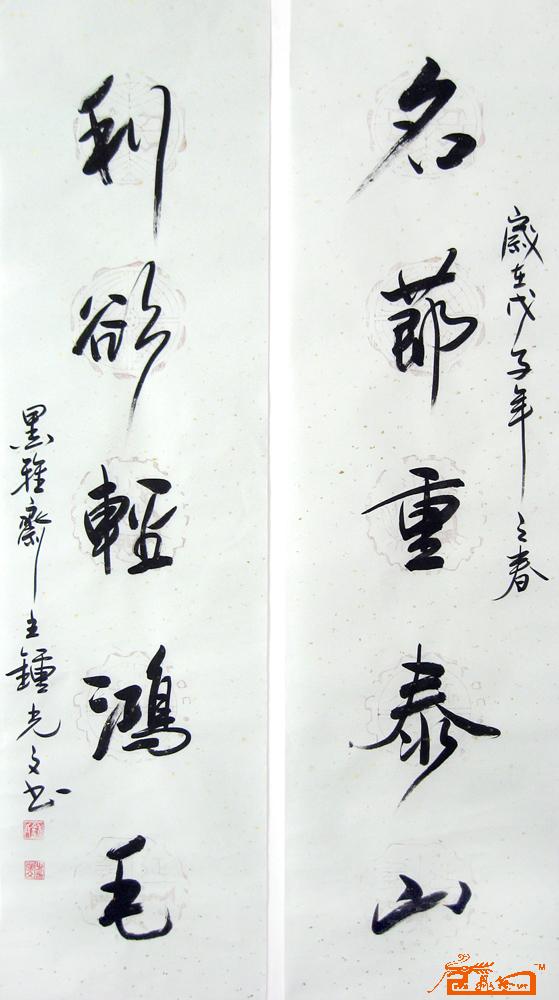 歲在戊子年之春
名節重泰山
利欲輕鴻毛
墨雅齋主鍾光文書